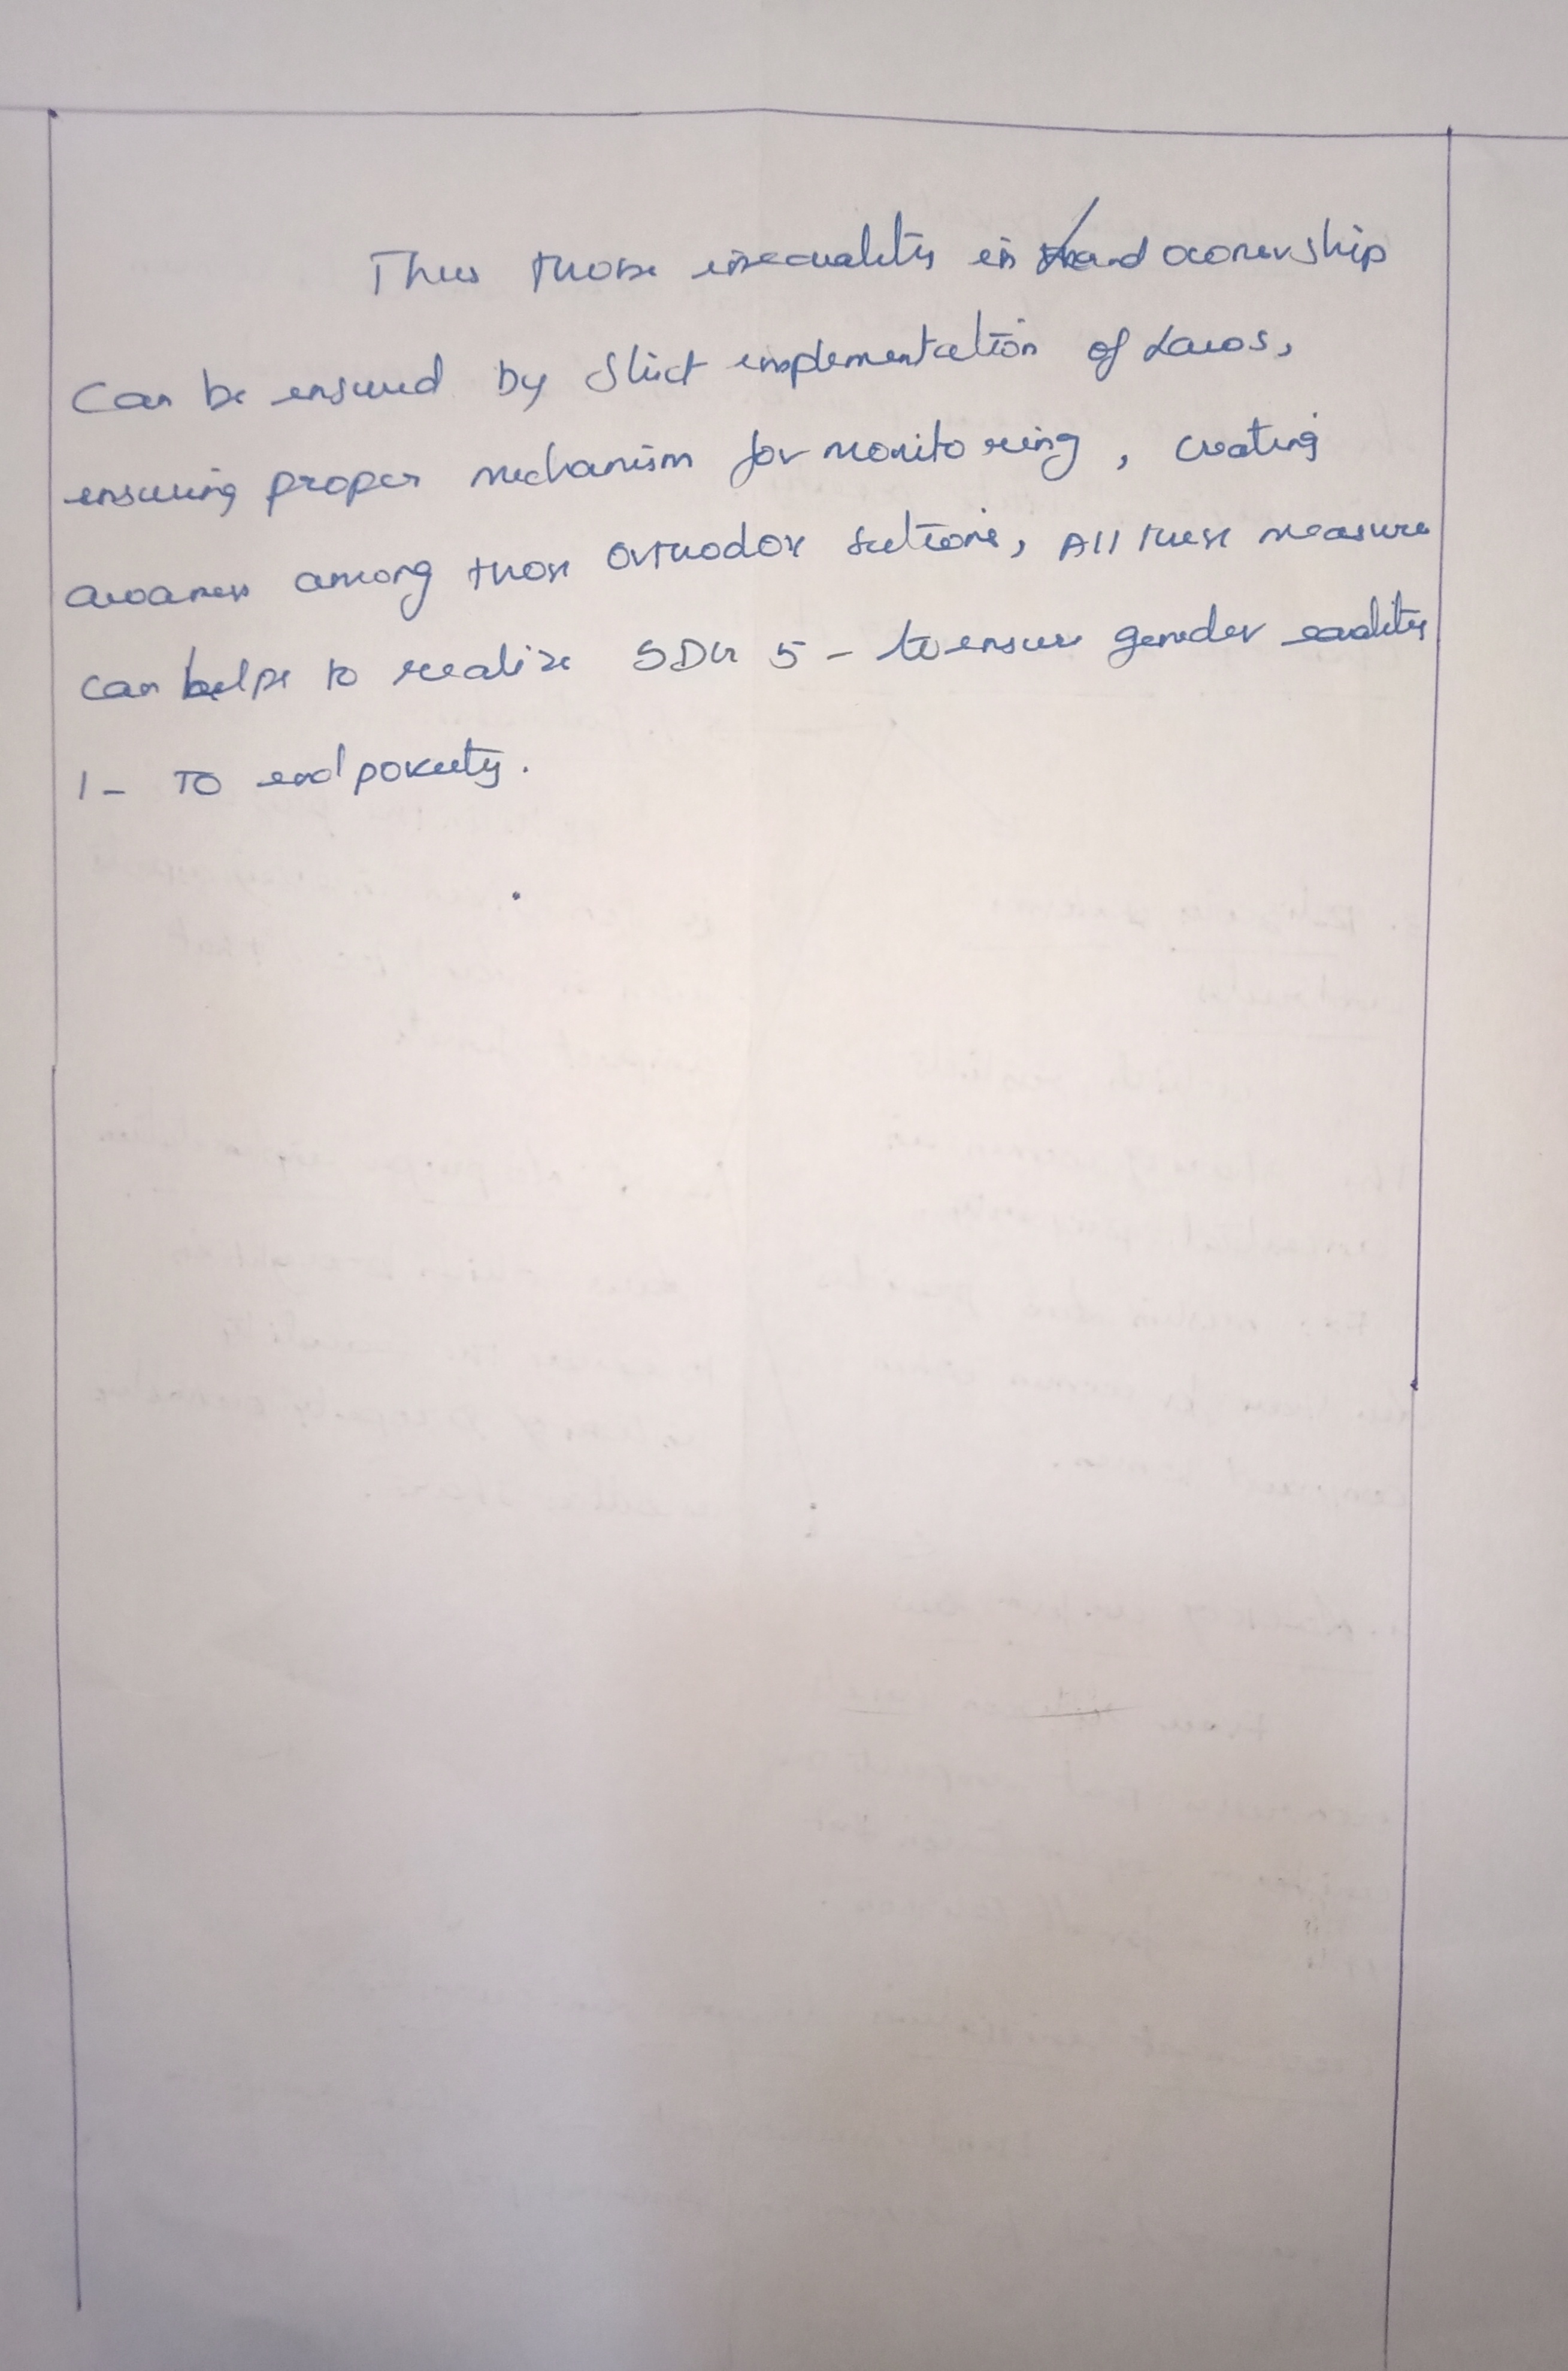 Thus those inequalities in land ownership
Can be ensured by Strict implementation of Laws,
ensuring proper mechanism for monitoring, creating
awarness among those Orthodox sections, All these measure
can helps to realize SDG 5 - to ensure gender equality
1 - TO end poverty.